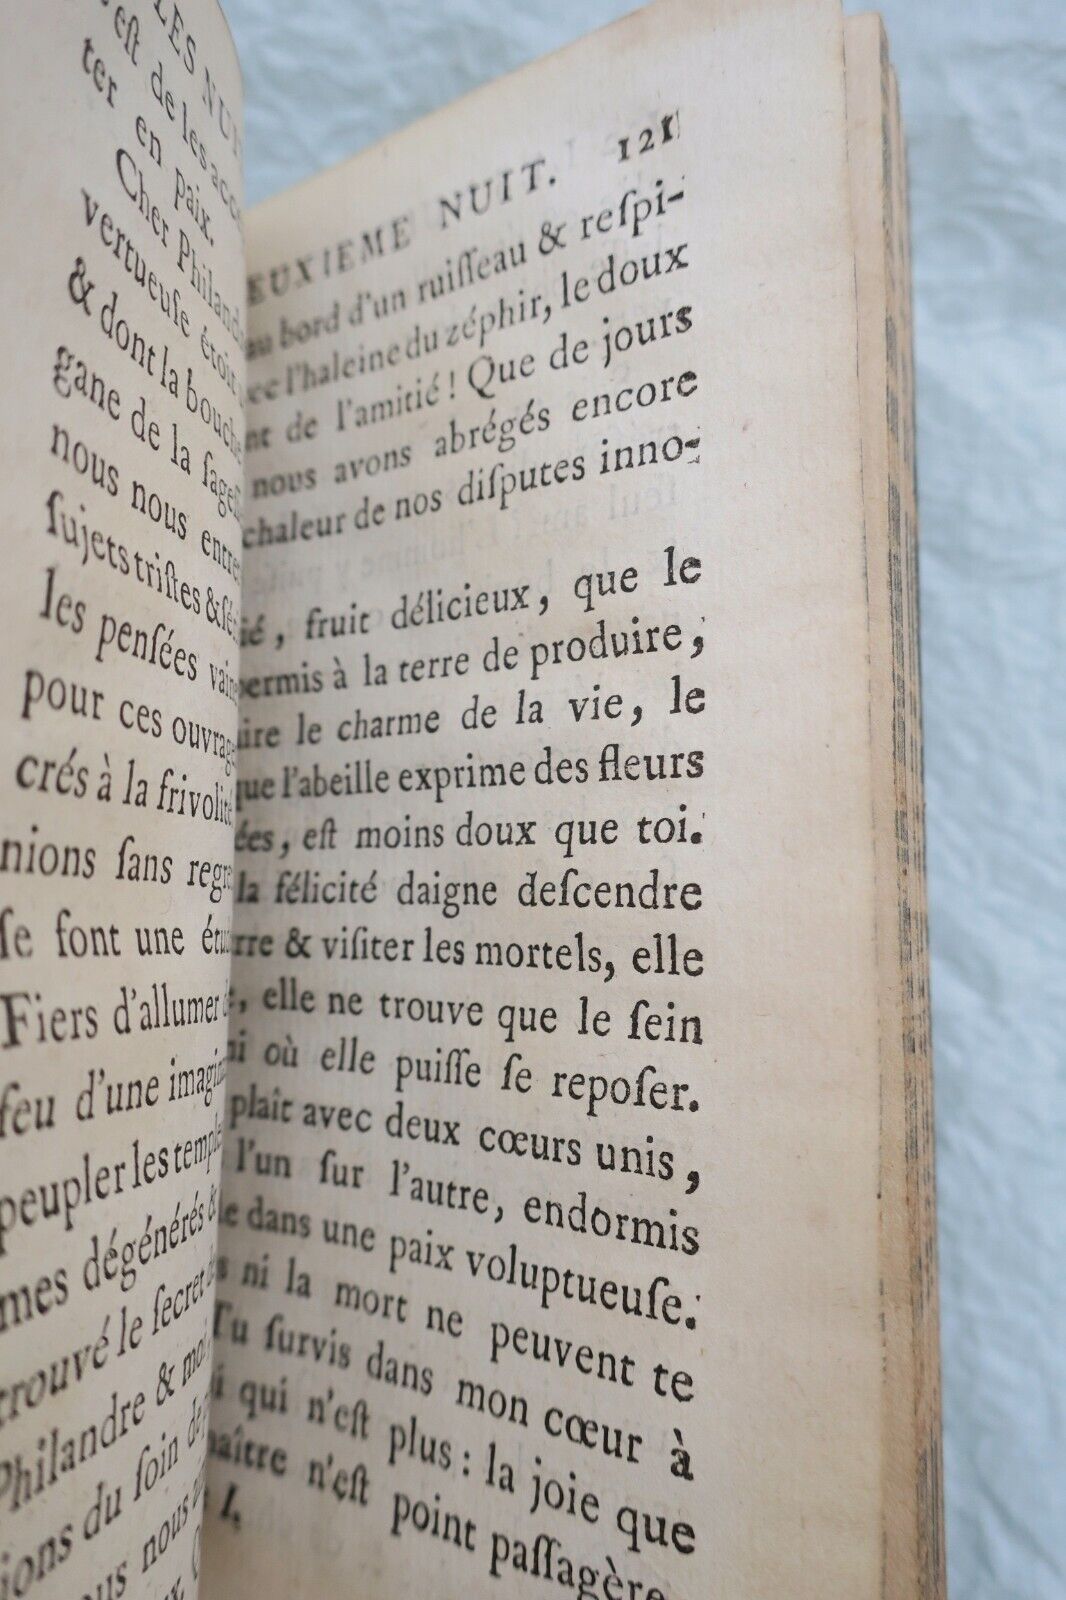 LES NUI
est de les acc
ter en paix.
Cher Philand
vertueuse étoit
& dont la bouche
gane de la sages
nous nous entre
sujets tristes & sé
les pensées vaine
pour ces ouvrage
crés à la frivolité
nions sans regre
se font une étu
Fiers d'allumer
feu d'une imagin
peupler les temple
mes dégénérés &
trouvé le secret
Philandre & moi
ions du soin de
nous
EUXIEME NUIT. 121
au bord d'un ruiſſeau & reſpi-
ec l'haleine du zéphir, le doux
nt de l'amitié ! Que de jours
nous avons abrégés encore
chaleur de nos diſputes inno-
ié, fruit délicieux, que le
permis à la terre de produire,
ire le charme de la vie, le
que l'abeille exprime des fleurs
ées, eſt moins doux que toi.
la félicité daigne deſcendre
rre & viſiter les mortels, elle
, elle ne trouve que le ſein
i où elle puiſſe ſe repoſer.
plaît avec deux cœurs unis,
l'un ſur l'autre, endormis
le dans une paix voluptueuſe.
s ni la mort ne peuvent te
Tu ſurvis dans mon cœur à
i qui n'eſt plus : la joie que
naître n'eſt point paſſagère
I.